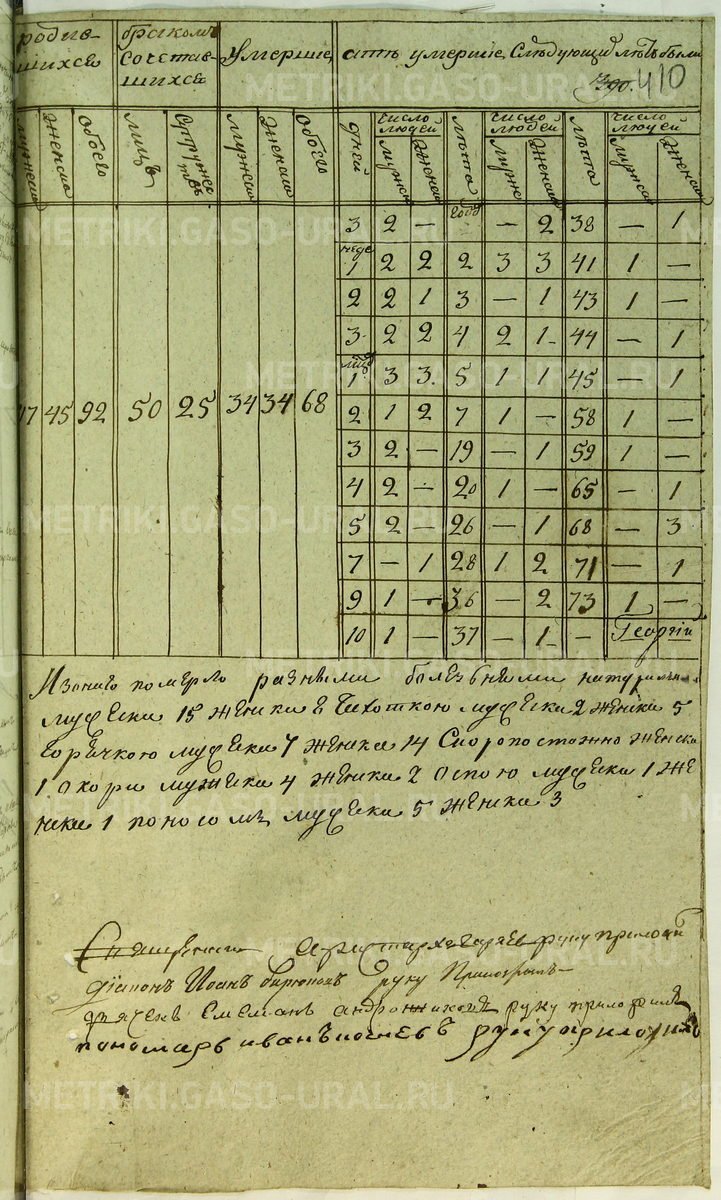 родив-
шихсѧ
бракомъ
Сочетав-
шихсѧ
Умершие
атъ умершие, Следующий летъ были
390. 410
мужеска Женска Обоего лицъ Супружествъ мужеска Женска Обоего дней число людей мужеска Женска лета число людей мужеска Женска лета число людей мужеска Женска
3 2 — года — 2 38 — 1
неде 1 2 2 2 3 3 41 1 —
2 2 1 3 — 1 43 1 —
3 2 2 4 2 1 44 — 1
1 3 3 5 1 1 45 — 1
47 45 92 50 25 34 34 68
2 1 2 7 1 — 58 1 —
3 2 — 19 — 1 59 1 —
4 2 — 20 1 — 65 — 1
5 2 — 26 — 1 68 — 3
7 — 1 28 1 2 71 — 1
9 1 — 36 — 2 73 1 —
10 1 — 37 — 1 — Георгій
Изоного померло разными болезьнями
мужеска 15 женска 8 Чихоткою мужеска 2 женска 5
горячкою мужеска 7 женска 14 Скоропостижно женска
1 о кори мужеска 4 женска 2 оспою мужеска 1 же
нска 1 поносомъ мужеска 5 женска 3
Священникъ руку приложилъ
діаконъ Иоанъ Бирюковъ руку Приложилъ
дьячекъ андроников руку приложилъ
пономарь иванъ руку приложилъ
METRIKI.GASO-URAL.RU